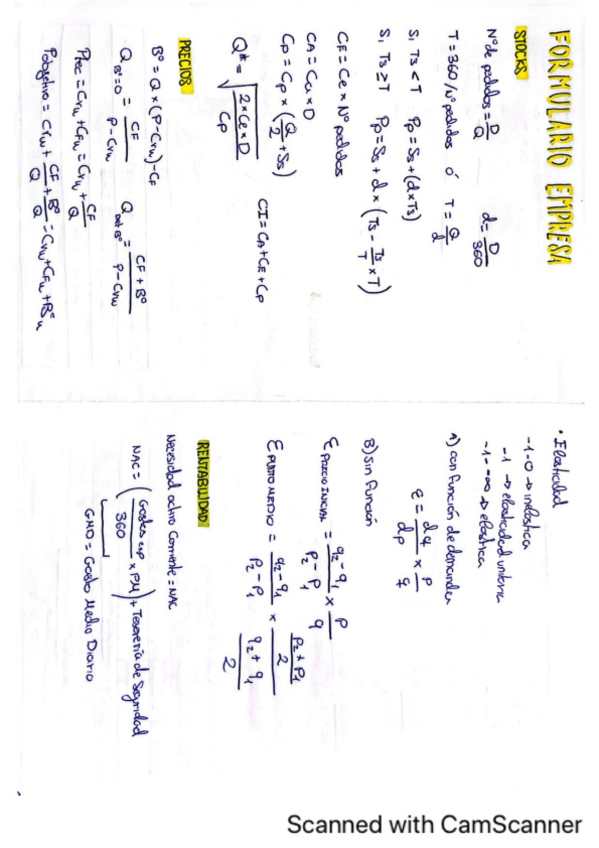 FORMULARIO EMPRESA
STOCKS
Nº de pedidos = D/Q    d = D/360
T = 360/Nº pedidos ó T = Q/d
Si Ts < T  Pp = Ss + (d×Ts)
Si Ts ≥ T  Pp = Ss + d × (Ts - Ts/T × T)
CE = Ce × Nº pedidos
CA = Cu × D
Cp = Cp × (Q/2 + Ss)    CI = CA + CE + Cp
Q* = √(2×Ce×D / Cp)
PRECIOS
Bº = Q × (P - Cvu) - CF
Q Bº=0 = CF / P - Cvu    Q = CF + Bº / P - Cvu
Ptec = Cvu + CFu = Cvu + CF/Q
Pobjetivo = Cvu + CF/Q + Bº/Q = Cvu + CFu + Bºu
• Elasticidad
-1 - 0 → inelástica
-1 → elasticidad unitaria
-1 - -∞ → elástica
A) con función de demanda
ε = dq/dp × p/q
B) sin función
ε PRECIO INICIAL = q2 - q1 / P2 - P1 × P/q
ε PUNTO MEDIO = q2 - q1 / P2 - P1 × (P2 + P1 / 2) / (q2 + q1 / 2)
RENTABILIDAD
Necesidad activo Corriente = NAC
NAC = (Gastos exp / 360 × PM) + Tesorería de Seguridad
GMD = Gasto Medio Diario
Scanned with CamScanner